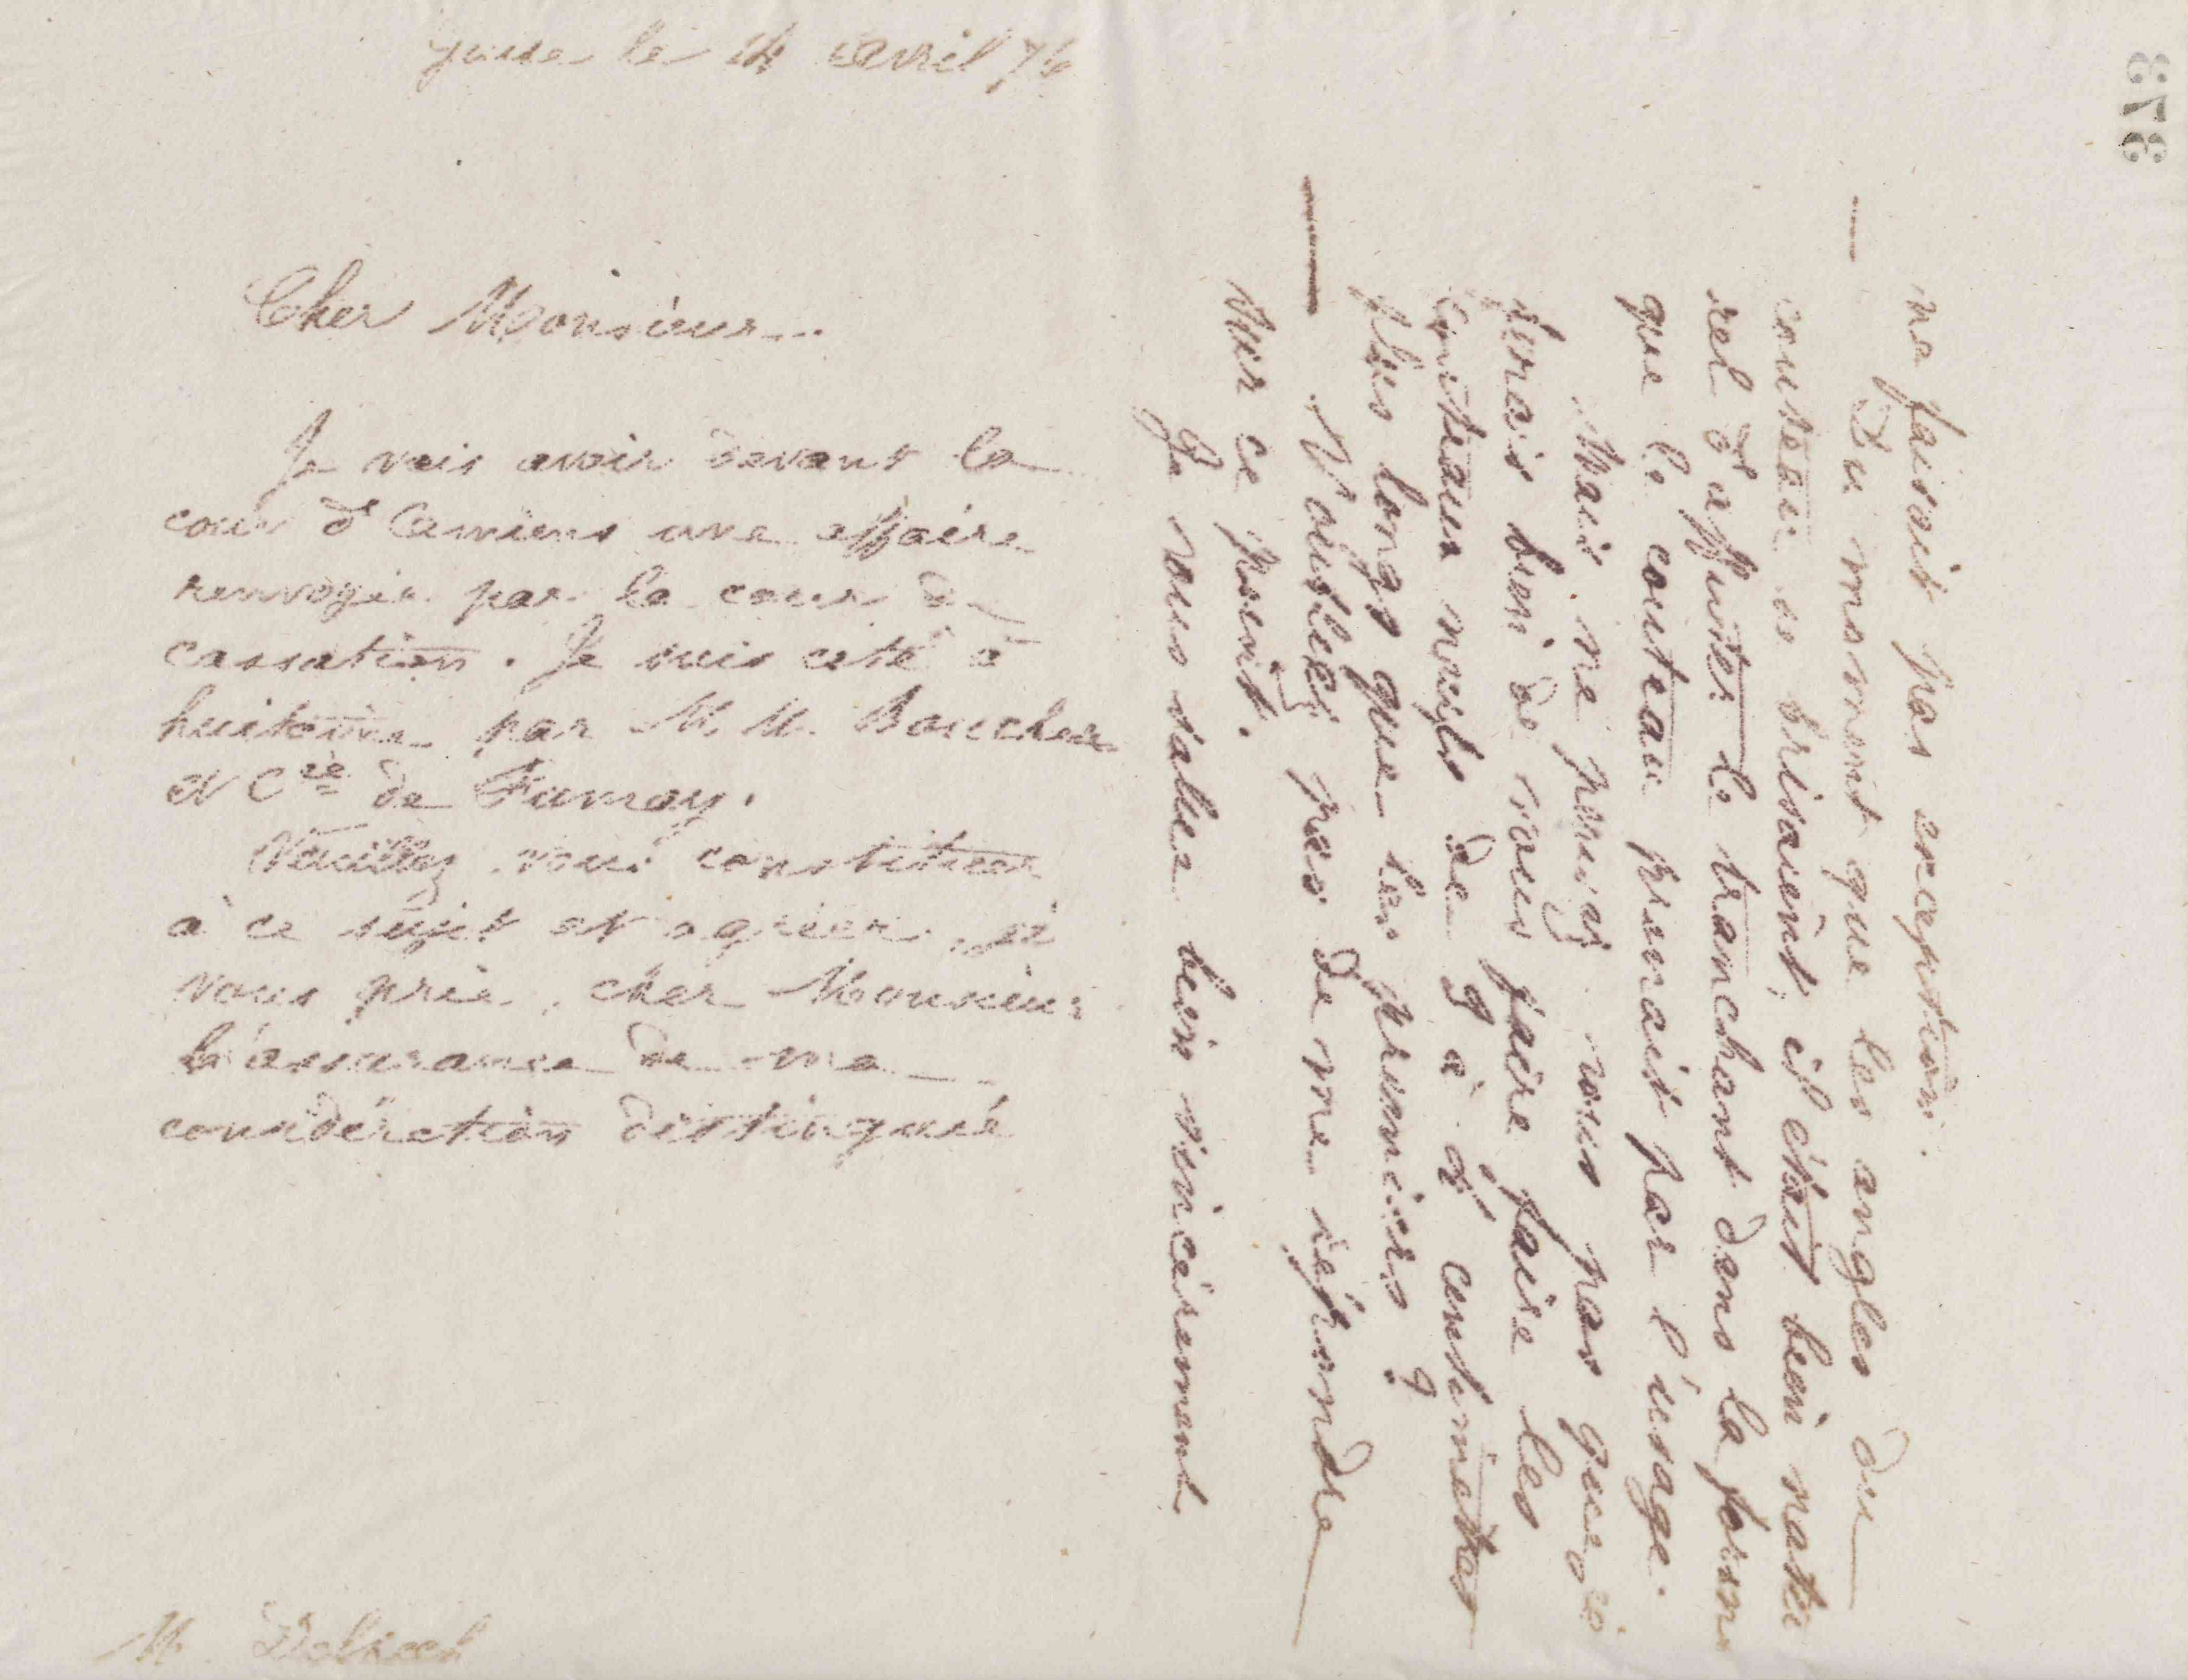 Guise le 14 avril 76
Cher Monsieur
Je vais avoir devant la
cour d'Amiens une affaire
renvoyée par la cour de
cassation. Je suis cité à
huitaine par M. M. Boucher
et Cie de Fumay.
Veuillez vous constituer
à ce sujet et agréer, je
vous prie, cher Monsieur
l'assurance de ma
considération distinguée
M.
378
ne faisait pas exception.
— Du moment que les angles du
couteau se brisaient, il était bien natu
rel d'affuter le tranchant dans la forme
que le couteau prenait par l'usage.
Mais ne pensez vous pas que je
ferais bien de vous faire faire les
couteaux neufs de 4 à 5 centimètres
plus longs que les premiers ?
— N'oubliez pas de me répondre
sur ce point.
Je vous salue bien sincèrement